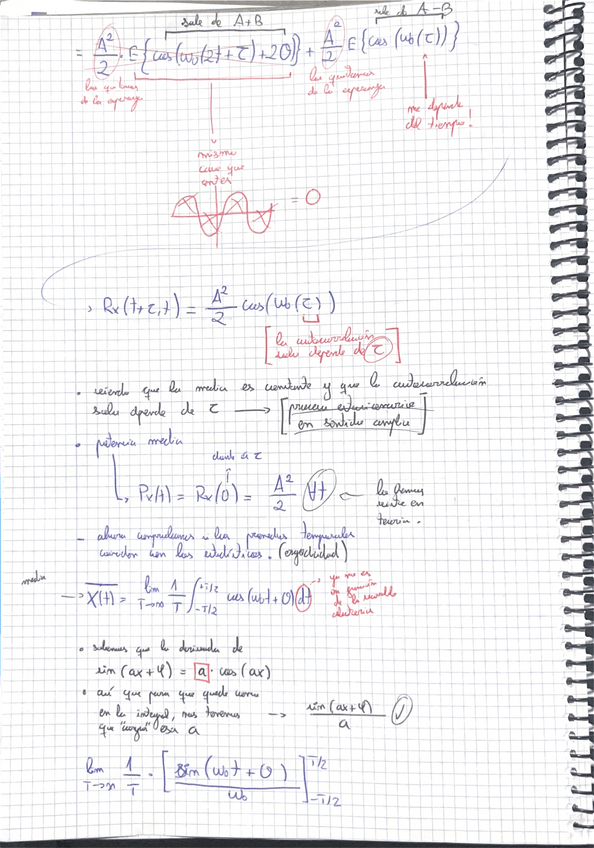 sale de A+B
sale de A-B
= A²/2 · E{cos(ω₀(2t+τ)+2Θ)} + A²/2 E{cos(ω₀(τ))}
de la esperanza
de la esperanza
no depende
del tiempo!
mismo
caso que
antes
= 0
→ Rx(t+τ,t) = A²/2 cos(ω₀(τ))
[la autocorrelación
solo depende de τ]
• viendo que la media es constante y que la autocorrelación
solo depende de τ → [proceso estacionario
en sentido amplio]
• potencia media
donde la τ
↳ Px(t) = Rx(0) = A²/2 ∀t
teoría.
- ahora comprobamos si los promedios temporales
coinciden con los estadísticos. (ergodicidad)
media → X(t) = lim T→∞ 1/T ∫ +T/2 -T/2 cos(ω₀t+Θ) dt
ya no es
en función
de la variable
aleatoria
• sabemos que la derivada de
sin(ax+φ) = a · cos(ax)
• así que para que quede como
en la integral, nos tenemos → sin(ax+φ)/a ✓
que "cargar" esa a
lim T→∞ 1/T · [sin(ω₀t+Θ)/ω₀] T/2 -T/2